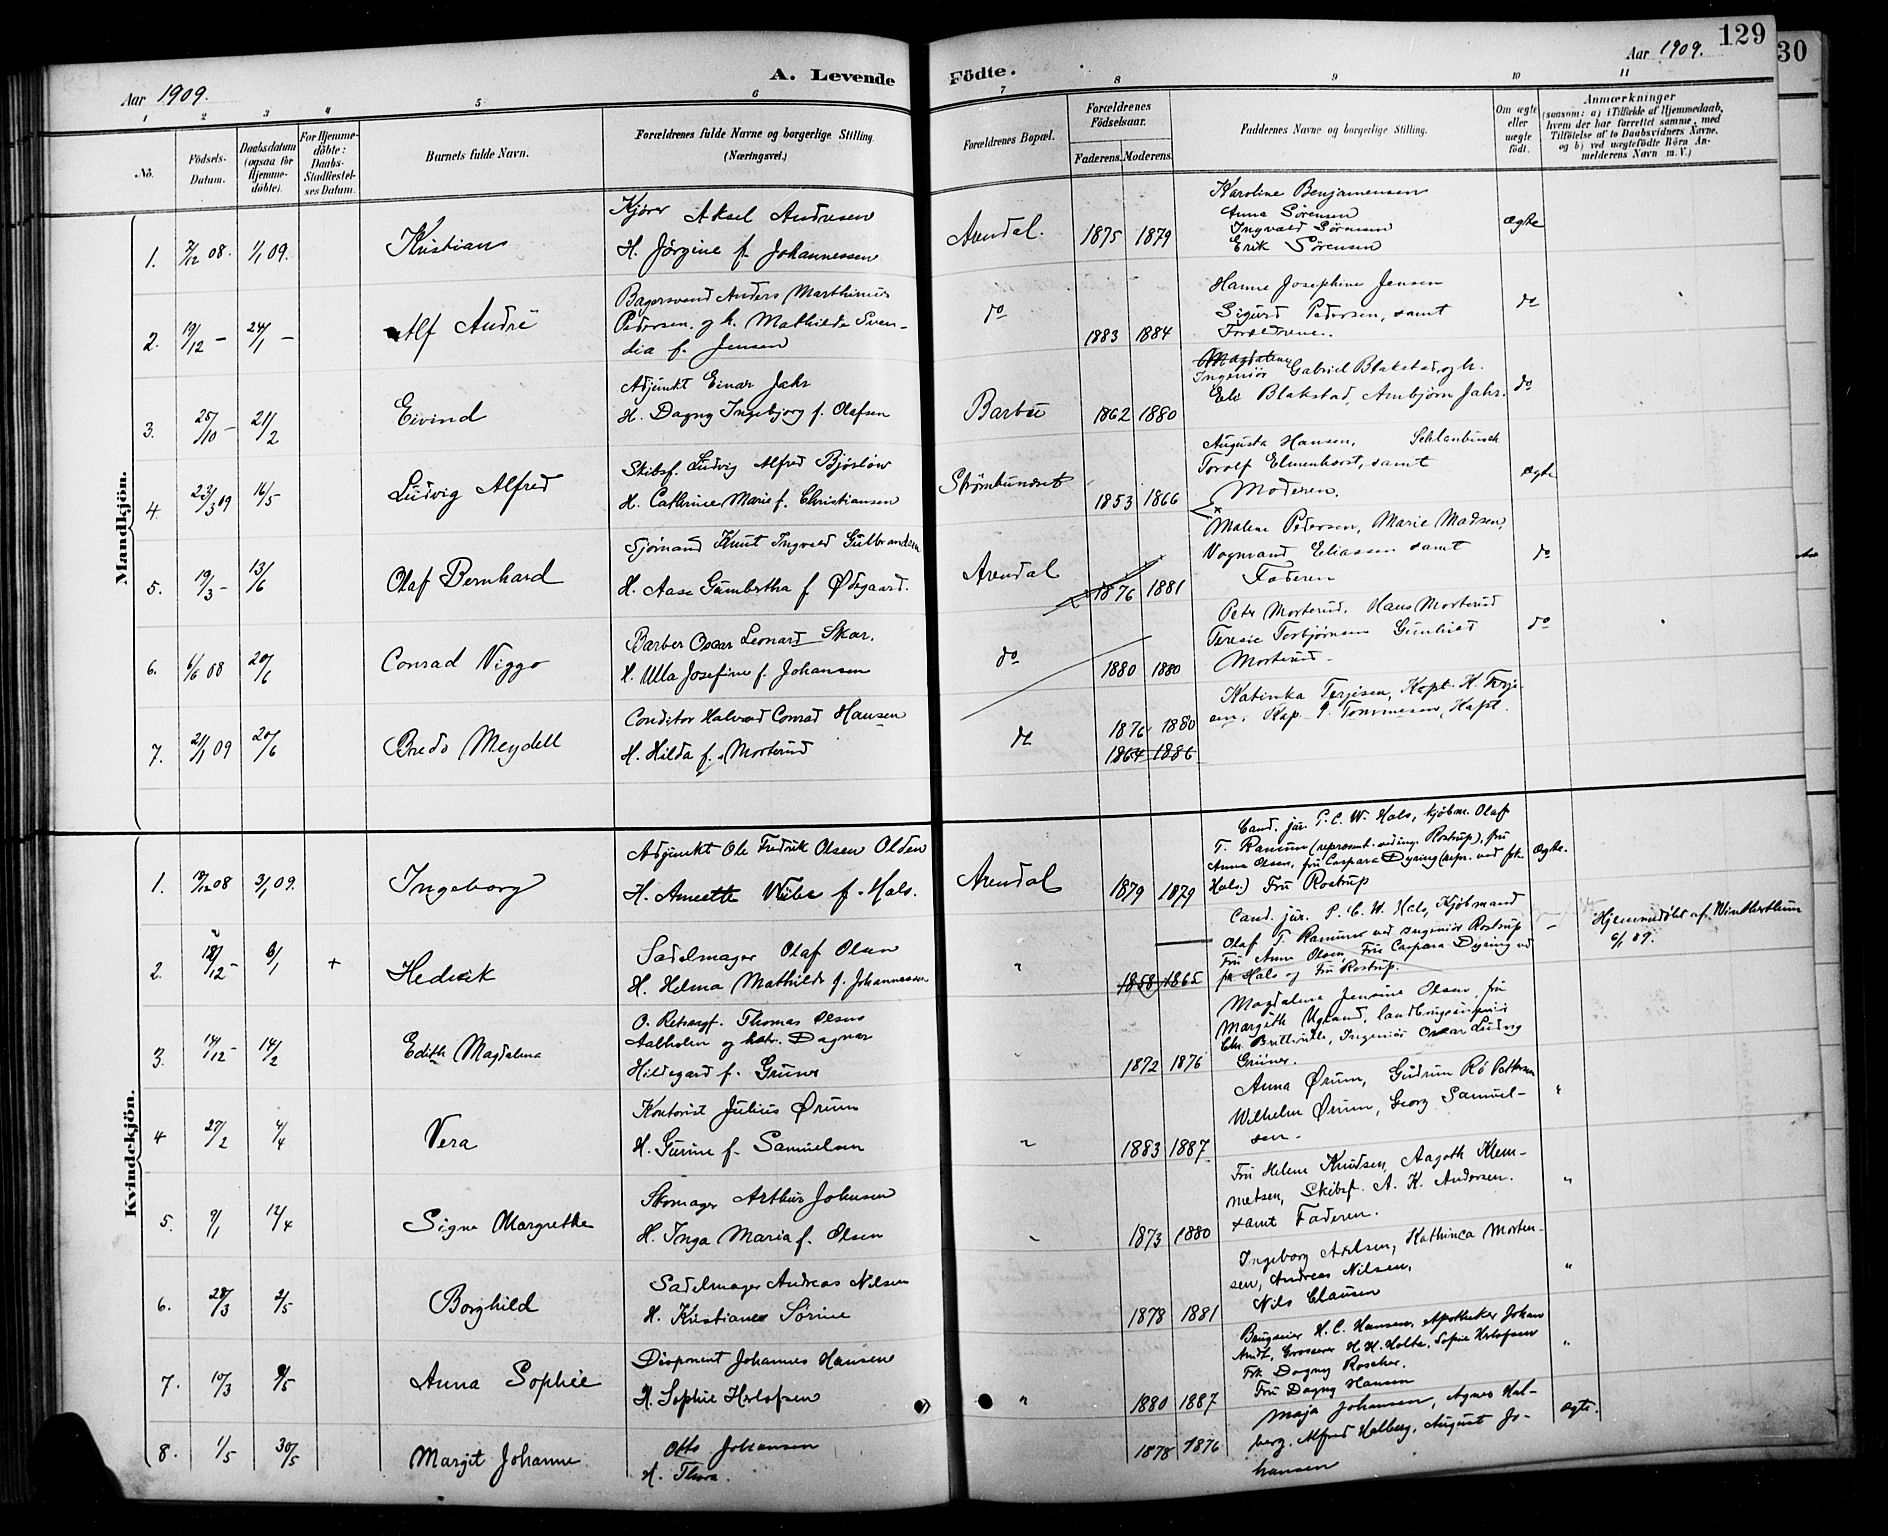 129
30
A. Levende Födte.
Aar 1909.
Aar 1909.
1 2 3 4 5 6 7 8 9 10 11
No.
Fødsels-
Datum.
Daabsdatum
(ogsaa för
Hjemme-
döbte).
For Hjemme-
döbte:
Daabs-
Stadfæstel-
ses Datum.
Barnets fulde Navn.
Forældrenes fulde Navne og borgerlige Stilling
(Næringsvei.)
Forældrenes Bopæl.
Forældrenes
Födselsaar.
Faderens. Moderens.
Faddernes Navne og borgerlige Stilling.
Om ægte
eller
uægte
födt.
Anmærkninger
(saasom: a) i Tilfælde af Hjemmedaab,
hvem der har forrettet samme, med
Tilföielse af to Daabsvidners Navne,
og b) ved uægtefödte Börn An-
melderens Navn m. V.)
Mandkjön.
1. 08. 1/1 09. Kristian
Kjører Aksel Andresen
H. Jørgine f. Johannessen
Arendal. 1875 1879
Karoline Benjamensen
Anna Sørensen
Ingvald Sørensen
Erik Sørensen
ægte
2. 19/12 – 24/1 – Alf André
Bagersvend Anders Marthinius
Pedersen og h. Mathilde Sven-
dia f. Jensen
do 1883 1884
Hanne Josephine Jensen
Sigurd Pedersen, samt
Forældrene.
do
3. 25/10 – 21/2 Eivind
Adjunkt Einar Jahr
H. Dagny Ingebjorg f. Olafsen
Barbu 1862 1880
Magdalene
Ingeniør Gabriel Blakstad, og h.
Eli Blakstad, Arnbjørn Jahr.
do
4. 23/3 09 16/5 Ludvig Alfred
Skibsf. Ludvig Alfred Bjørlow
H. Cathrine Marie f. Christiansen
Strømbunæs 1853 1866
Augusta Hansen, Schlanbusch
Torolf Elmenhorst, samt
Moderen.
ægte
5. 19/3 – 13/6 Olaf Bernhard
Sjømand Knut Ingvald Gulbrandsen
H. Aase Gumbertha f Ødegaard.
Arendal 1876 1881
Malene Pedersen, Marie Madsen,
Vognmand Eliassen samt
Faderen
do
6. 6/6 08 20/6 Conrad Viggo
Barber Oscar Leonard Skar.
H. Ulla Josefine f. Johansen
do 1880 1880
Peter Morterud, Hans Morterud
Teresie Torbjørnsen Gunhild
Morterud –
do
7. 21/1 09 20/6 Bredo Meydell
Conditor Halvard Conrad Hansen
H. Hilda f. Morterud
do 1876 1880
1864 1886
Katinka Terjesen, Kapt. K. Terje-
sen, Kap. P. Tommesen, Kapt.
Kvindekjön.
1. 08 3/1 09. Ingeborg
Adjunkt Ole Fredrik Olsen Olden
H. Annette Wibe f. Hals.
Arendal 1879 1879
Cand. jur. P. C. W. Hals, kjøbm. Olaf
T. Ramum (repræsent. ved ing. Rostrup), fru
Anna Olsen, fru Caspara Dyring (repr. ved frk.
Hals.) Fru Rostrup
Ægte.
2. 18/12 – 6/1 + Hedvik
Sadelmager Olaf Olsen
H. Helma Mathilde f. Johannessen
" 1858 1865
Cand. jur. P. C. W. Hals, Kjøbmand
Olaf T. Ramum ved ingeniør Rostrup
Fru Anne Olsen, Fru Caspara Dyring ved
fr. Hals og Fru Rostrup.
–
Hjemmedøbt af Winther
6/1 09.
3. 12 – 14/2 Edith Magdalena
O. Retssagf. Thomas Olsen
Aalholm og hstr. Dagmar
Hildegard f. Gruner
1872 1876
Magdalene Jensine Olsen fru
Margith Ugland, landbrugsingeniør
Chr. , Ingeniør Oscar Ludvig
Grüner.
4 27/2 4/4 Vera
Kontorist Julius Ørum
H. Gurine f. Samuelsen
" 1883 1887
Anna Ørum, Gudrun Rö Pettersen
Wilhelm Ørum, Georg Samuel-
sen –
"
5. 9/1 12/4 Signe Margrethe
Skomager Arthur Johnsen
H. Inga Maria f. Olsen
" 1873 1880
Fru Helene Knudsen, Aagoth Klem-
metsen, Skibsf. A. K. Andersen.
samt Faderen.
"
6. 28/3 2/5 Borghild
Sadelmager Andreas Nilsen
H. Kristiane Sørine
1878 1881
Ingeborg Axelsen, Kathinca Morten-
sen, Andreas Nilsen,
Nils Clausen
"
7. 10/3 9/5 Anna Sophie
Disponent Johannes Hansen
H. Sophie Herlofsen
" 1880 1887
Brugseier H. C. Hansen, Apotheker Johan
Arndt, Grosserer H. H. Holta, Sofie Herlofsen
Frk Dagny Roscher.
Fru Dagny Hansen
"
8. 1/5 30/5 Margit Johanne
Otto Johansen
H. Thora.
1878 1876
Maja Johansen, Agnes Hal-
berg, Alfred Halberg, August Jo-
hansen
ægte.